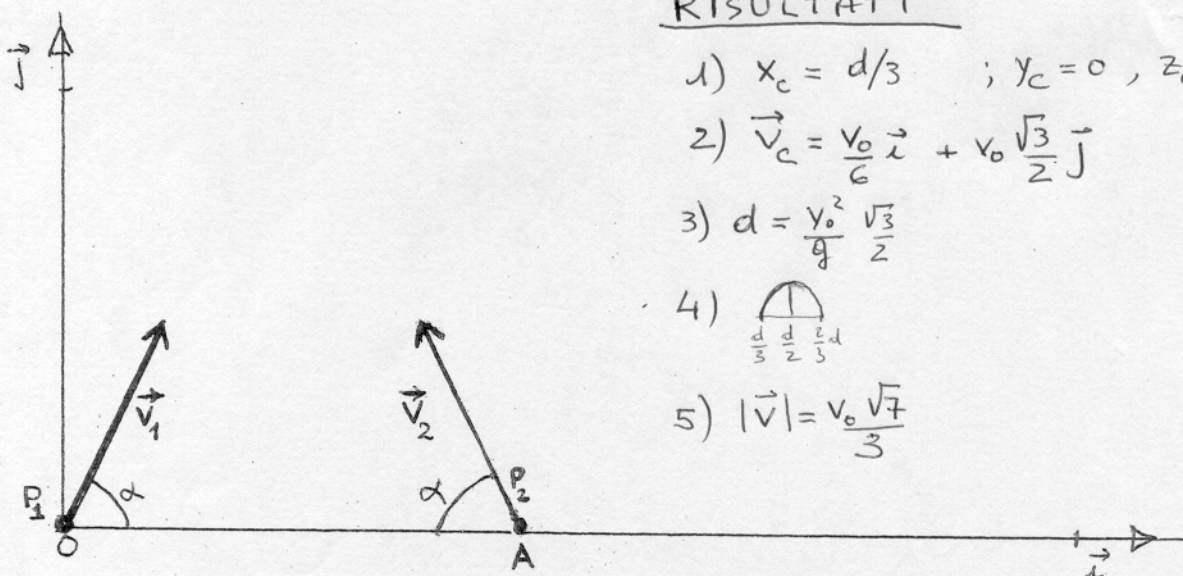 RISULTATI
j⃗
1) x_c = d/3 ; y_c = 0 , z
2) V⃗_c = v₀/6 i⃗ + v₀ √3/2 j⃗
3) d = v₀²/g √3/2
4) d/3 d/2 2/3 d
5) |V⃗| = v₀ √7/3
V⃗₁
V⃗₂
P₁ α α P₂
O A